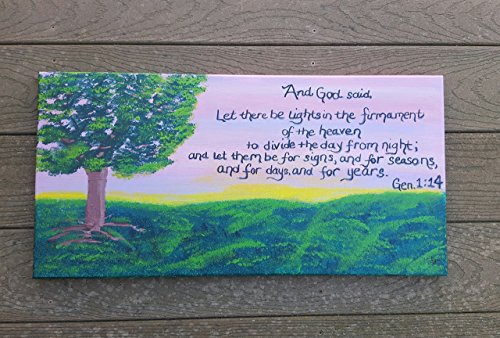 And God said,
Let there be Lights in the firmament
of the heaven
to divide the day from night;
and let them be for signs, and for seasons,
and for days, and for years.
Gen. 1:14